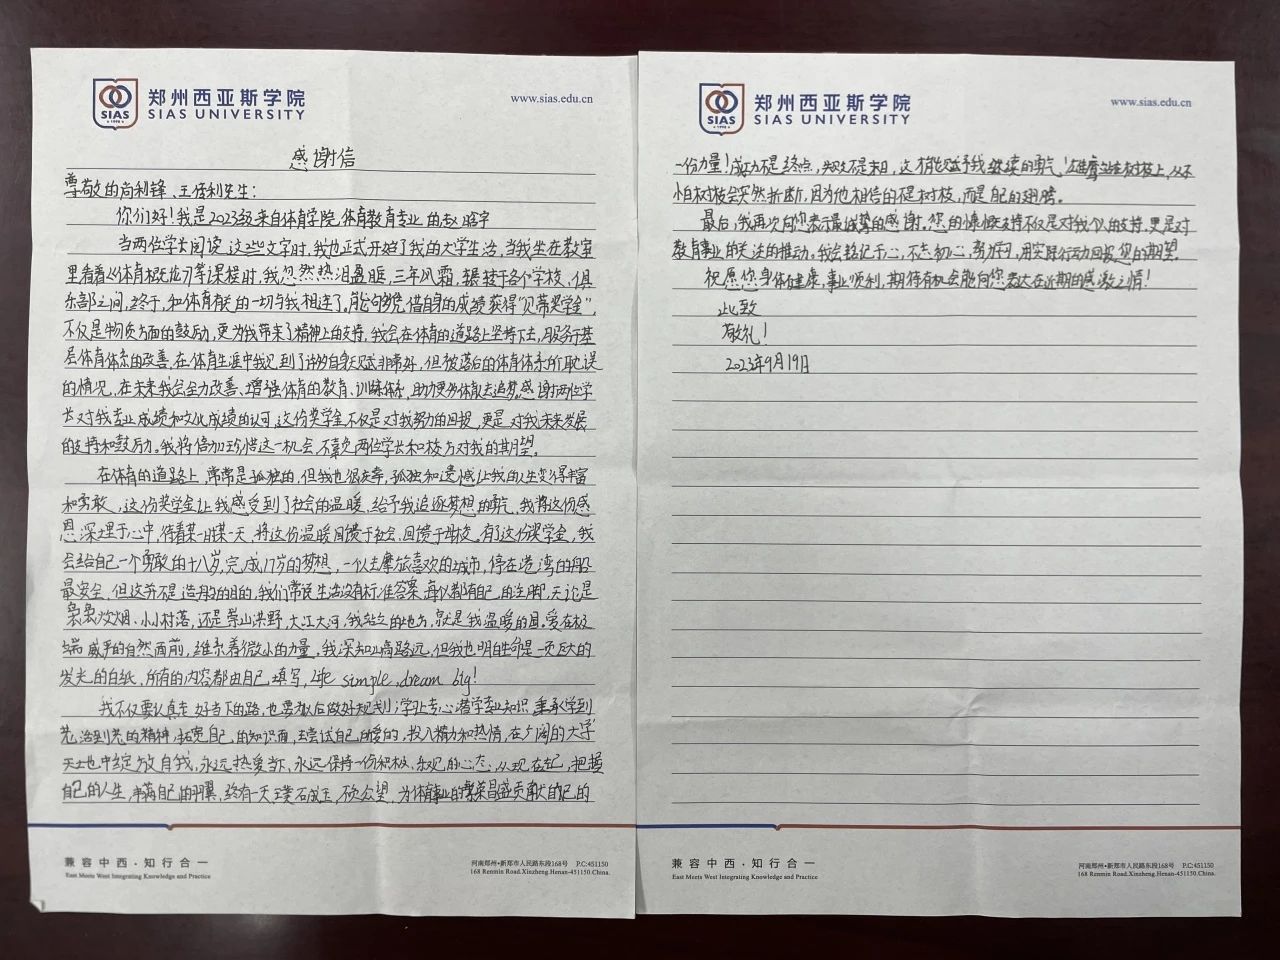 郑州西亚斯学院
SIAS UNIVERSITY
SIAS
1998
www.sias.edu.cn
感谢信
尊敬的尚利锋、王任利先生：
你们好！我是2023级来自体育学院体育教育专业的赵晗宇
当两位学长阅读这些文字时，我也正式开始了我的大学生活，当我坐在教室
里看着从体育概论等课程时，我忽然热泪盈眶，三年风霜，辗转于各个学校、俱
乐部之间，终于，和体育有关的一切与我相连了。能够凭借自身的成绩获得“贝蒂奖学金”，
不仅是物质方面的鼓励，更为我带来了精神上的支持，我会在体育的道路上坚持下去，服务于基
层体育体系的改善，在体育生涯中我见到了许多自身天赋非常好，但被落后的体育体系所耽误
的情况，在未来我会全力改善、增强体育的教育、训练体系，助力更多体育人去追梦。感谢两位学
长对我专业成绩和文化成绩的认可，这份奖学金不仅是对我努力的回报，更是对我未来发展
的支持和鼓励。我将倍加珍惜这一机会，不辜负两位学长和校方对我的期望。
在体育的道路上，常常是孤独的，但我也很庆幸，孤独和遗憾让我的人生变得丰富
和勇敢，这份奖学金让我感受到了社会的温暖，给予我追逐梦想的勇气，我将这份感
恩深埋于心中，待着某一日某一天，将这份温暖回馈于社会、回馈于母校。有了这份奖学金，我
会给自己一个勇敢的十八岁，完成17岁的梦想，一个人去摩旅喜欢的城市，停在港湾的船
最安全，但这并不是造船的目的，我们常说生活没有标准答案，每个人都有自己的注脚，无论是
袅袅炊烟、小小村落，还是崇山洪野，大江大河，我站立的地方，就是我温暖的目。爱在极
端威严的自然面前，维系着微小的力量，我深知山高路远，但我也明白生命是一页巨大的
发光的白纸，所有的内容都由自己填写，Life simple，dream big！
我不仅要认真走好当下的路，也要为以后做好规划；学习上专心潜学专业知识，秉承学到
老，活到老的精神，拓宽自己的知识面，去尝试自己所爱的，投入精力和热情，在广阔的大学
天地中绽放自我，永远热爱当下、永远保持一份积极、乐观的心态；从现在起，把握
自己的人生，丰满自己的羽翼，终有一天璞石成玉，不负众望，为体育事业的繁荣昌盛贡献自己的
兼容中西·知行合一
East Meets West Integrating Knowledge and Practice
河南郑州·新郑市人民路东段168号 P.C:451150
168 Renmin Road.Xinzheng.Henan-451150.China.
郑州西亚斯学院
SIAS UNIVERSITY
SIAS
1998
www.sias.edu.cn
一份力量！成功不是终点，失败不是末日，这才能赋予我继续的勇气！雄鹰站在树枝上，从不
怕树枝会突然折断，因为他相信的不是树枝，而是自己的翅膀。
最后，我再次向您表示最诚挚的感谢。您的慷慨支持不仅是对我个人的支持，更是对
教育事业的关注的推动。我会铭记于心，不忘初心，努力学习，用实际行动回报您的期望。
祝愿您身体健康，事业顺利，期待有机会能向您表达在近期的感激之情！
此致
敬礼！
2023年9月19日
兼容中西·知行合一
East Meets West Integrating Knowledge and Practice
河南郑州·新郑市人民路东段168号 P.C:451150
168 Renmin Road.Xinzheng.Henan-451150.China.